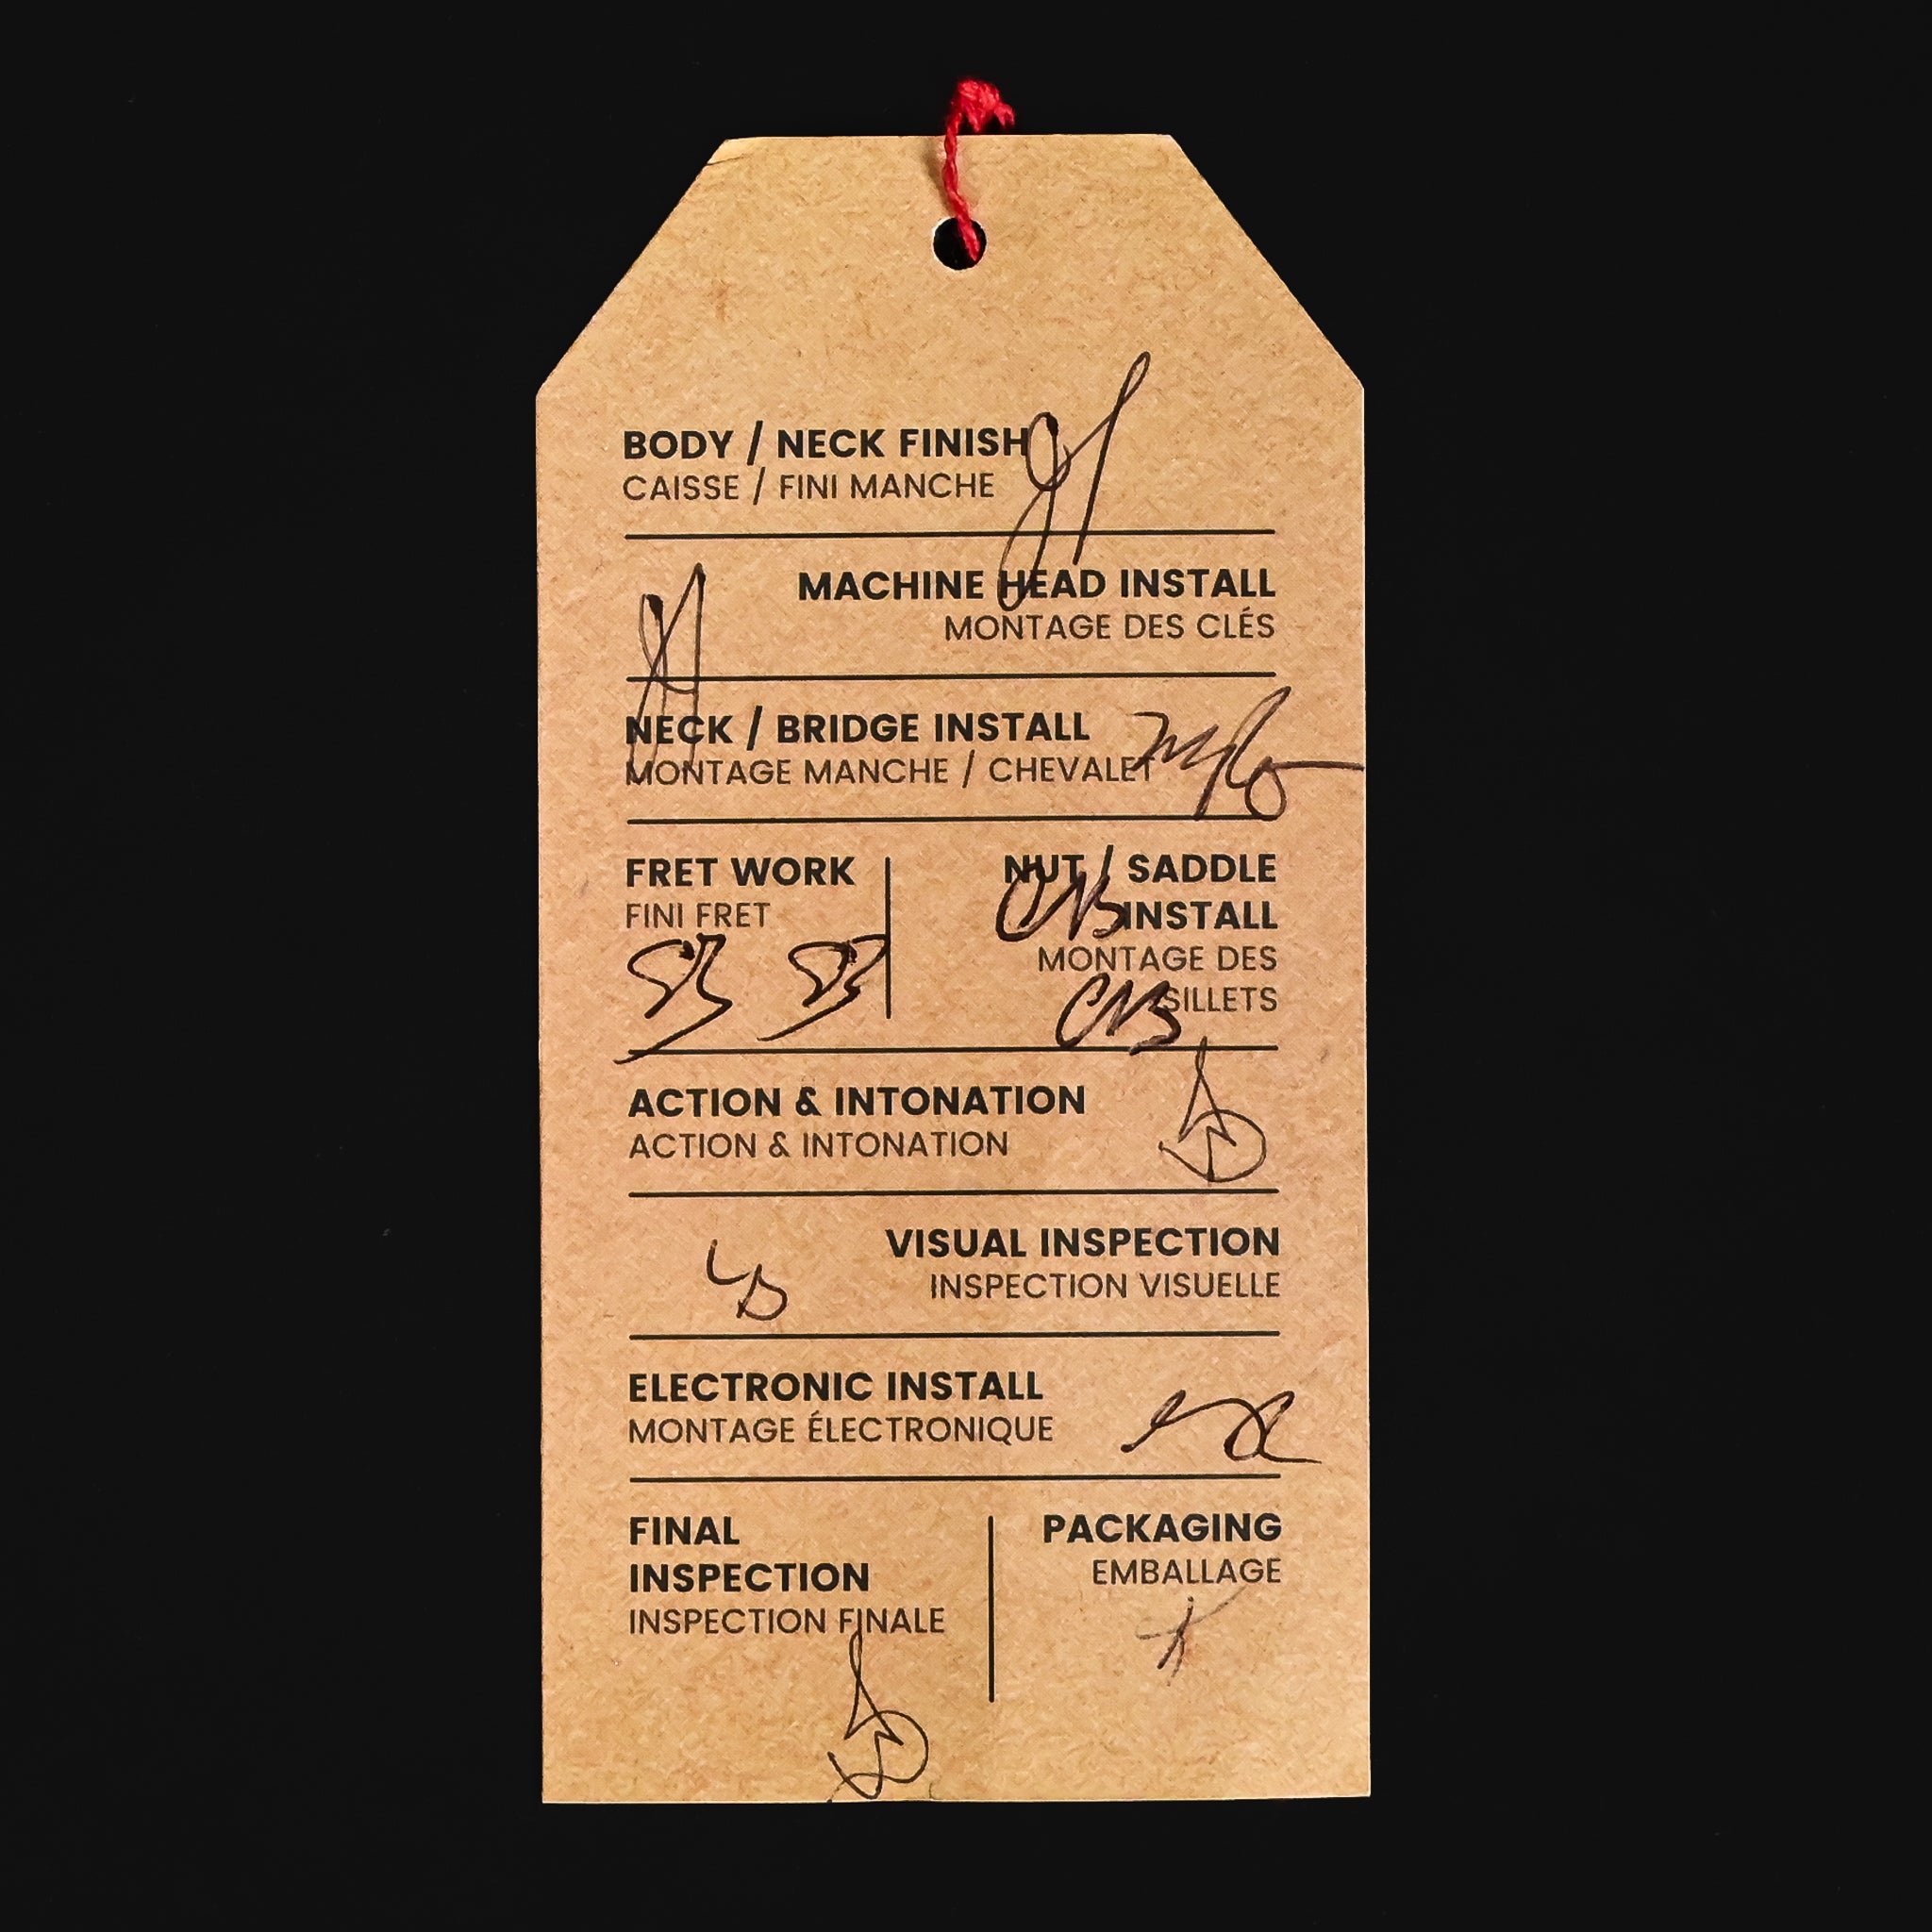 BODY / NECK FINISH
CAISSE / FINI MANCHE
MACHINE HEAD INSTALL
MONTAGE DES CLÉS
NECK / BRIDGE INSTALL
MONTAGE MANCHE / CHEVALET
FRET WORK
FINI FRET
NUT / SADDLE
INSTALL
MONTAGE DES
SILLETS
ACTION & INTONATION
ACTION & INTONATION
VISUAL INSPECTION
INSPECTION VISUELLE
ELECTRONIC INSTALL
MONTAGE ÉLECTRONIQUE
FINAL
INSPECTION
INSPECTION FINALE
PACKAGING
EMBALLAGE